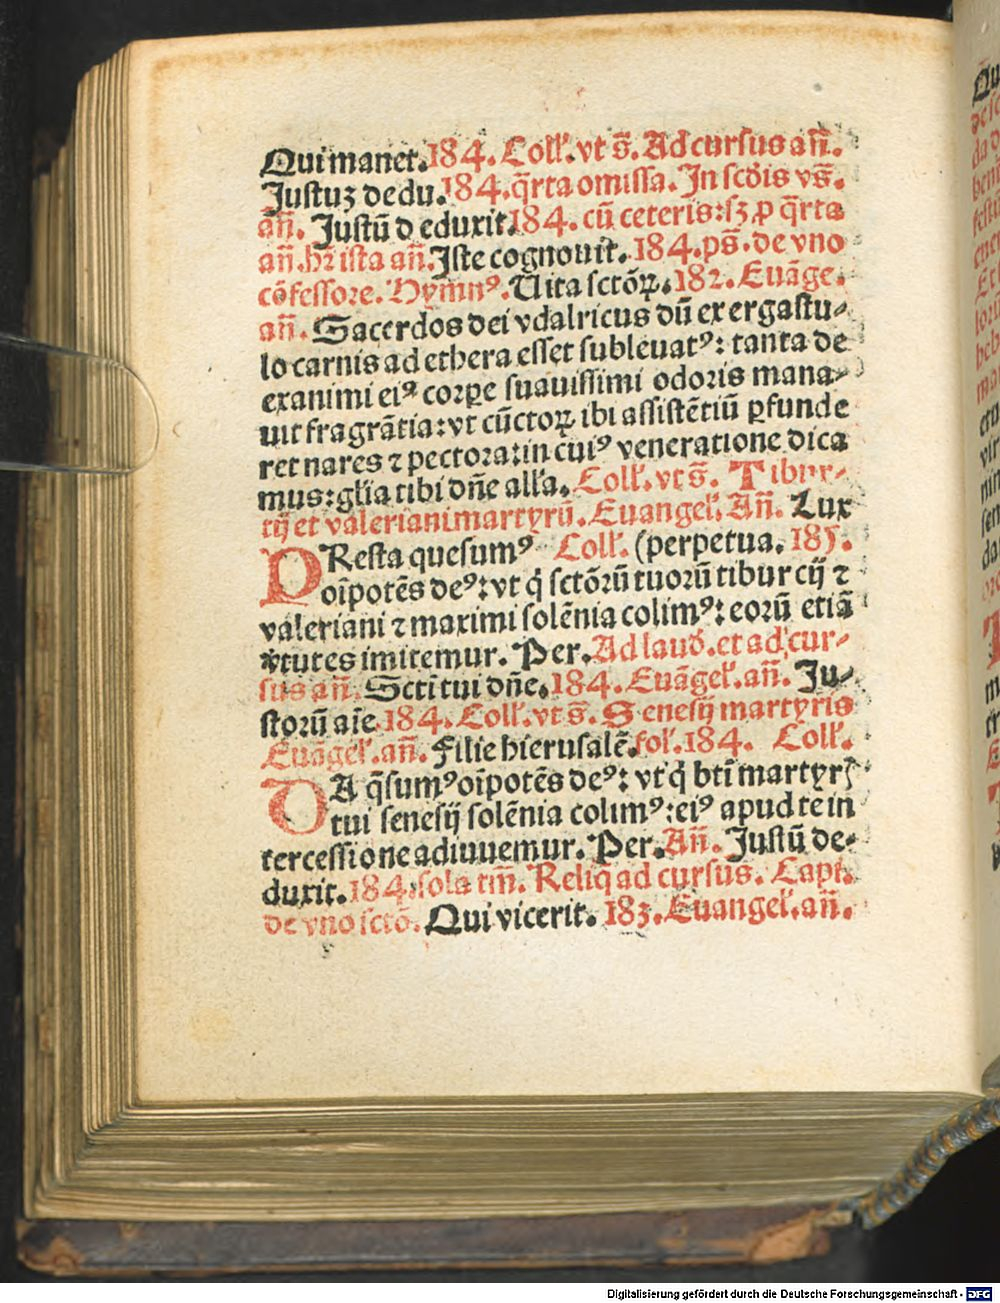 Qui manet. 184. Coll'. vt s̄. Ad cursus an̄.
Justuꝫ dedu. 184. q̄rta omissa. In scd̓is vs̄.
an̄. Justū deduxit. 184. cū ceteris: sꝫ ꝓ q̄rta
an̄. hr̄ ista an̄. Iste cognouit. 184. ps̄. de vno
cōfessore. Hymnꝰ. Uita sctōꝝ. 182. Euāge.
an̄. Sacerdos dei vdalricus dū ex ergastu⸗
lo carnis ad ethera esset subleuatꝰ: tanta de
exanimi eiꝰ corꝑe suauissimi odoris mana⸗
uit fragrātia: vt cūctoꝝ ibi assistētiū ꝑfunde
ret nares ⁊ pectora: in cuiꝰ veneratione dica
mus: gl̄ia tibi dn̄e all'a. Coll'. vt s̄. Tibur⸗
tij et valeriani martyrū. Euangel'. An̄. Lux
PResta quesumꝰ Coll'. (perpetua. 185.
oīpotēs deꝰ: vt q̓ sctōrū tuorū tiburcij ⁊
valeriani ⁊ maximi solēnia colimꝰ: eorū etiā
v̓tutes imitemur. Per. Ad laud̓. et ad cur⸗
sus an̄. Scti tui dn̄e. 184. Euāgel'. an̄. Ju⸗
storū aīe 184. Coll'. vt s̄. Senesij martyris
Euāgel'. an̄. Filie hierusalē. fol. 184. Coll'.
DA q̄sumꝰ oīpotēs deꝰ: vt q̓ bt̄i martyrꝭ
tui senesij solēnia colimꝰ: eiꝰ apud te in
tercessione adiuuemur. Per. An̄. Justū de⸗
duxit. 184. sola tm̄. Reliq̄ ad cursus. Capt.
de vno sctō. Qui vicerit. 183. Euangel'. an̄.
Digitalisierung gefördert durch die Deutsche Forschungsgemeinschaft - DFG